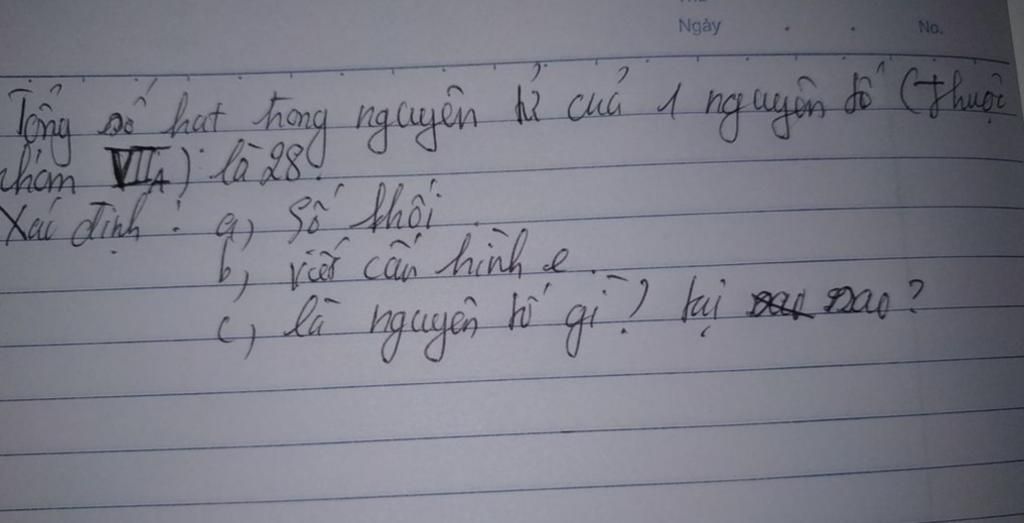 Ngày . . No.
Tổng số hat trong nguyên tử cuả 1 nguyên tố (thuộc
nhóm VIIA) là 28.
Xác định : a, Số khối.
b, viết cấu hình e.
c, là nguyên tố gì? tại sao?